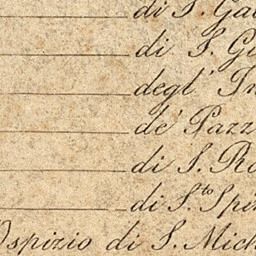 di S. Gal
di S. Gi
degl' In
de' Pazz
di S. Ro
di S.to Spi
Ospizio di S. Mich